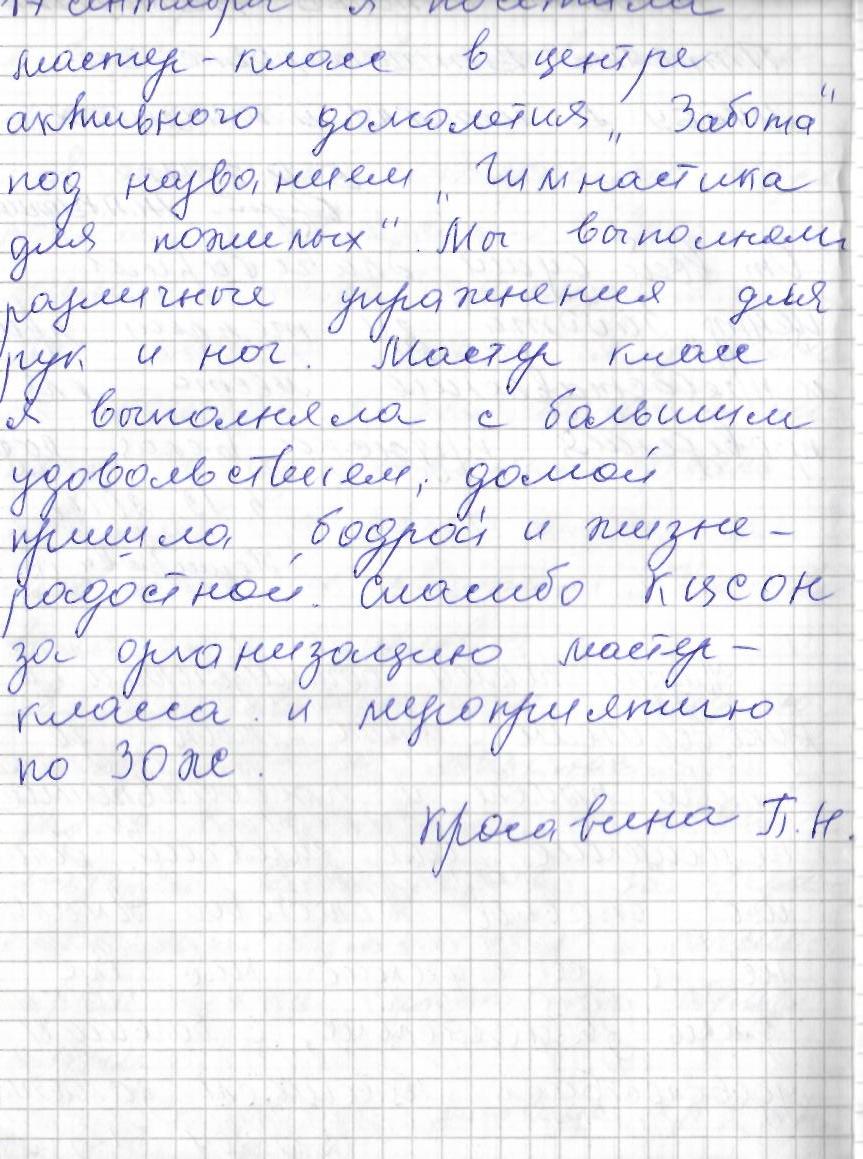 17 сентября я посетила
мастер-класс в центре
активного долголетия „Забота“
под названием „Гимнастика
для пожилых“. Мы выполняли
различные упражнения для
рук и ног. Мастер класс
я выполняла с большим
удовольствием, домой
пришла бодрой и жизне-
радостной. Спасибо КЦСОН
за организацию мастер-
класса и мероприятию
по ЗОЖ.
Красавина П.Н.